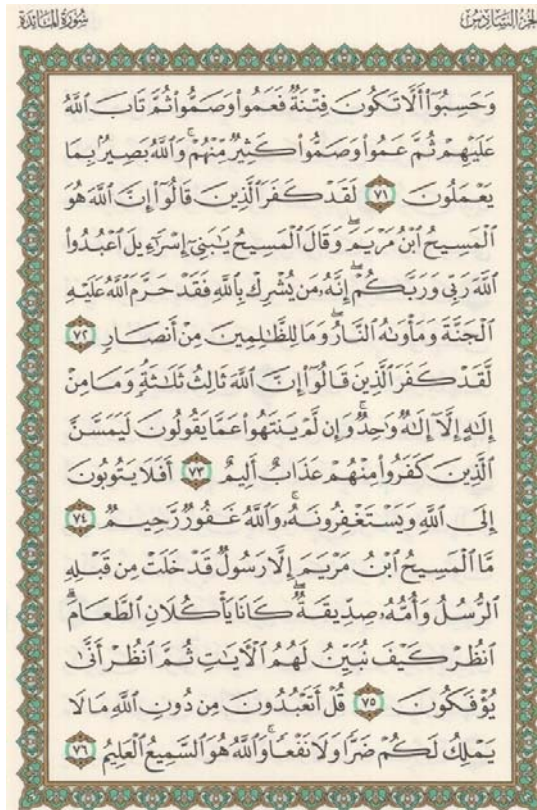 سُورَةُ المَائدة
الجزء السَّادِسُ
وَحَسِبُوٓا۟ أَلَّا تَكُونَ فِتْنَةٌ فَعَمُوا۟ وَصَمُّوا۟ ثُمَّ تَابَ ٱللَّهُ
عَلَيْهِمْ ثُمَّ عَمُوا۟ وَصَمُّوا۟ كَثِيرٌ مِّنْهُمْ ۚ وَٱللَّهُ بَصِيرٌۢ بِمَا
يَعْمَلُونَ ٧١ لَقَدْ كَفَرَ ٱلَّذِينَ قَالُوٓا۟ إِنَّ ٱللَّهَ هُوَ
ٱلْمَسِيحُ ٱبْنُ مَرْيَمَ ۖ وَقَالَ ٱلْمَسِيحُ يَٰبَنِىٓ إِسْرَٰٓءِيلَ ٱعْبُدُوا۟
ٱللَّهَ رَبِّى وَرَبَّكُمْ ۖ إِنَّهُۥ مَن يُشْرِكْ بِٱللَّهِ فَقَدْ حَرَّمَ ٱللَّهُ عَلَيْهِ
ٱلْجَنَّةَ وَمَأْوَىٰهُ ٱلنَّارُ ۖ وَمَا لِلظَّٰلِمِينَ مِنْ أَنصَارٍ ٧٢
لَّقَدْ كَفَرَ ٱلَّذِينَ قَالُوٓا۟ إِنَّ ٱللَّهَ ثَالِثُ ثَلَٰثَةٍ ۘ وَمَا مِنْ
إِلَٰهٍ إِلَّآ إِلَٰهٌ وَٰحِدٌ ۚ وَإِن لَّمْ يَنتَهُوا۟ عَمَّا يَقُولُونَ لَيَمَسَّنَّ
ٱلَّذِينَ كَفَرُوا۟ مِنْهُمْ عَذَابٌ أَلِيمٌ ٧٣ أَفَلَا يَتُوبُونَ
إِلَى ٱللَّهِ وَيَسْتَغْفِرُونَهُۥ ۚ وَٱللَّهُ غَفُورٌ رَّحِيمٌ ٧٤
مَّا ٱلْمَسِيحُ ٱبْنُ مَرْيَمَ إِلَّا رَسُولٌ قَدْ خَلَتْ مِن قَبْلِهِ
ٱلرُّسُلُ وَأُمُّهُۥ صِدِّيقَةٌ ۖ كَانَا يَأْكُلَانِ ٱلطَّعَامَ ۗ
ٱنظُرْ كَيْفَ نُبَيِّنُ لَهُمُ ٱلْءَايَٰتِ ثُمَّ ٱنظُرْ أَنَّىٰ
يُؤْفَكُونَ ٧٥ قُلْ أَتَعْبُدُونَ مِن دُونِ ٱللَّهِ مَا لَا
يَمْلِكُ لَكُمْ ضَرًّا وَلَا نَفْعًا ۚ وَٱللَّهُ هُوَ ٱلسَّمِيعُ ٱلْعَلِيمُ ٧٦